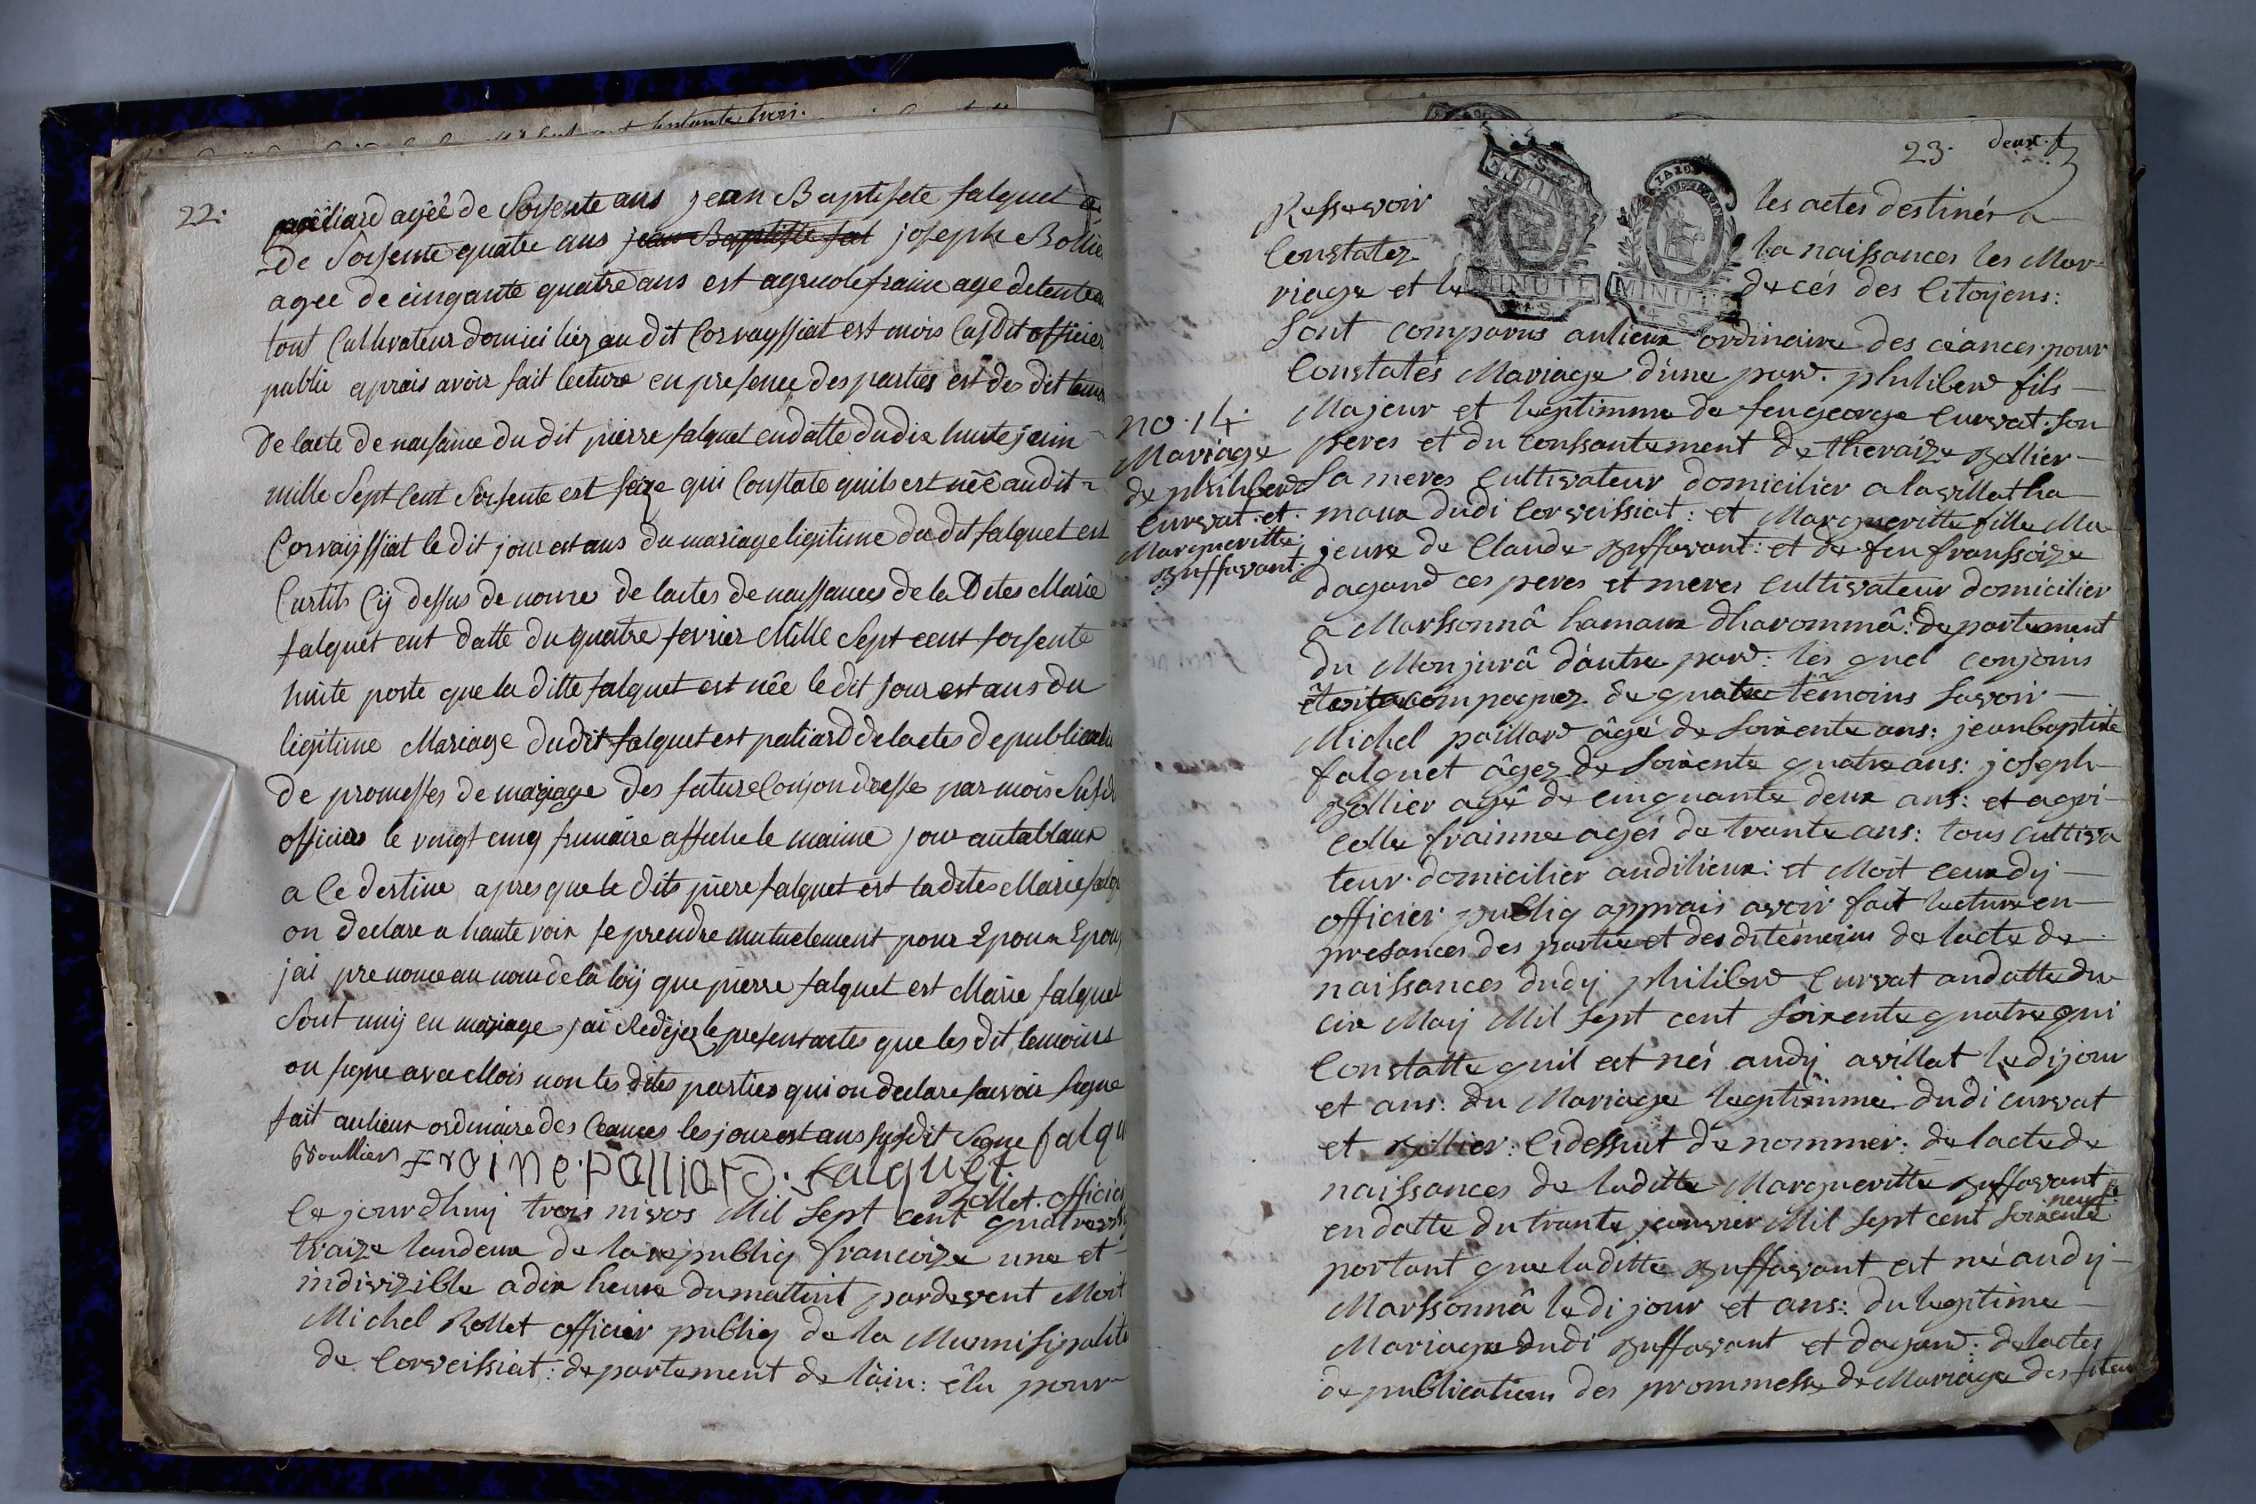 22:
palliard agêé de Soisente ans jean Baptisete falquet a
de Soisente quatre ans jean Baptiste fal joseph Bollie
agee de cinqante quatre ans est agricole fraine age de tente
tous Cultivateur domiciliez au dit Corvayssiat est mois Cusdit officier
public aprais avoir fait lecture en presence des parties est des dit temoi
de lacte de naisance du dit pierre falquet en datte du dix huite juin
mille Sept Cent Soisente est seize qui Constate quils est néé au dit
Corvayssiat le dit jour est ans du mariage ligitime du dit falquet est
Curtils Cy dessus de nome de lactes de naissances de la Dites Marie
falquet ent datte du quatre fevrier Mille Sept cent soisente
huite porte que la ditte falquet est née le dit jour est ans du
legitime Mariage dudit falquet est paliard de lactes de publicati
de promesses de mariage des future Conjon dresse par mois Susd
officier le vingt cinq frimaire affiche le maime jour au tableaux
a Ce destine apres que le dits piere falquet est la dites Marie falq
on declare a haute voix se prendre mutuelement pour Epoux Epous
jai prenonce au nom de la loy que pierre falquet est Marie falquet
Sont uny en mariage jai Redijez le present actes que les dit temoins
on signe avec Mois non les dites parties qui on declare savoir signe
fait au lieux ordinaire des Ceances les jour est ans susdit Signe falqu
Boullier Fraine. palliard. falquet.
Rollet. officier
Ce jourdhuij trois nivos Mil Sept cent quatrevin
traize landeux de la republiq francoize une et
indivizible a dix heure du mattint pardevent Moit
Michel Rollet officier publiq de la Munnisipalite
de Corveissiat: departement de làin: êlu pour
23. deux. f
Ressevoir les actes destinés a
Constatez la naissances les Mar=
riage et le decés des Citoyens:
MINUTE
MINUTE
Sont comparus aulieux ordinaire des céances pour
Constatés Mariage d'une part. philibert fils
no. 14. Majeur et legitimme de feu george Curvat. son
Mariage peres et du conssantement de theraize Bollier
de philibert Sa meres Cultivateur domicilier a la villat ha
Curvat. et. maux dudi Corveissiat: et Margueritte fille Ma
Margueritte jeure de Claude Buffavant: et de feu franssoize
Buffavant: dagand ces peres et meres cultivateur domicilier
a Marssonnâ hamaux dharommâ: departement
du Monjurâ d'autre part: les quel conjoins
êtoit acompagnez de quatre têmoins Savoir
Michel paillard âgé de Soixente ans: jeanbaptiste
falquet âgez de Soixente quatre ans: joseph
Bollier agê de cinquante deux ans: et agri
colle frainne agés de trante ans: tous cultiva
teur. domicilier audilieux: et Moit ceusdij
officier publiq apprais avoir fait lecture en
presances des partie et des ditemoins de lacte de
naissances dudij philibert Curvat andatte du
cix Maij Mil Sept cent Soixente quatre qui
Constatte quil est nés audij avillat ledijour
et ans: du Mariage legitimme dudi curvat
et Bollier: Cidessut de nommer: de lacte de
naissances de laditte Margueritte Buffavant
en datte du trante jeanvier Mil Sept cent Soixente neuf
portant que laditte Buffavant est né audij
Marssonnâ ledi jour et ans: du legitime
Mariage dudi Buffavant et dagand: de lactes
de publications des prommesse de Mariage des futeur